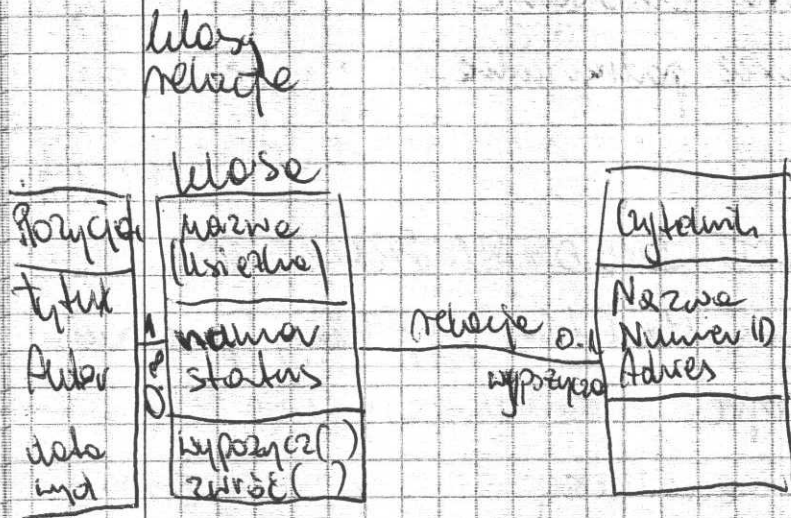 klasy
relacje
klasa
Pozycja
tytuł
Autor
data
wyd
nazwa
(książka)
numer
status
wypożycz( )
zwróć( )
relacje
0..1
wypożycza
Czytelnik
Nazwa
Numer ID
Adres